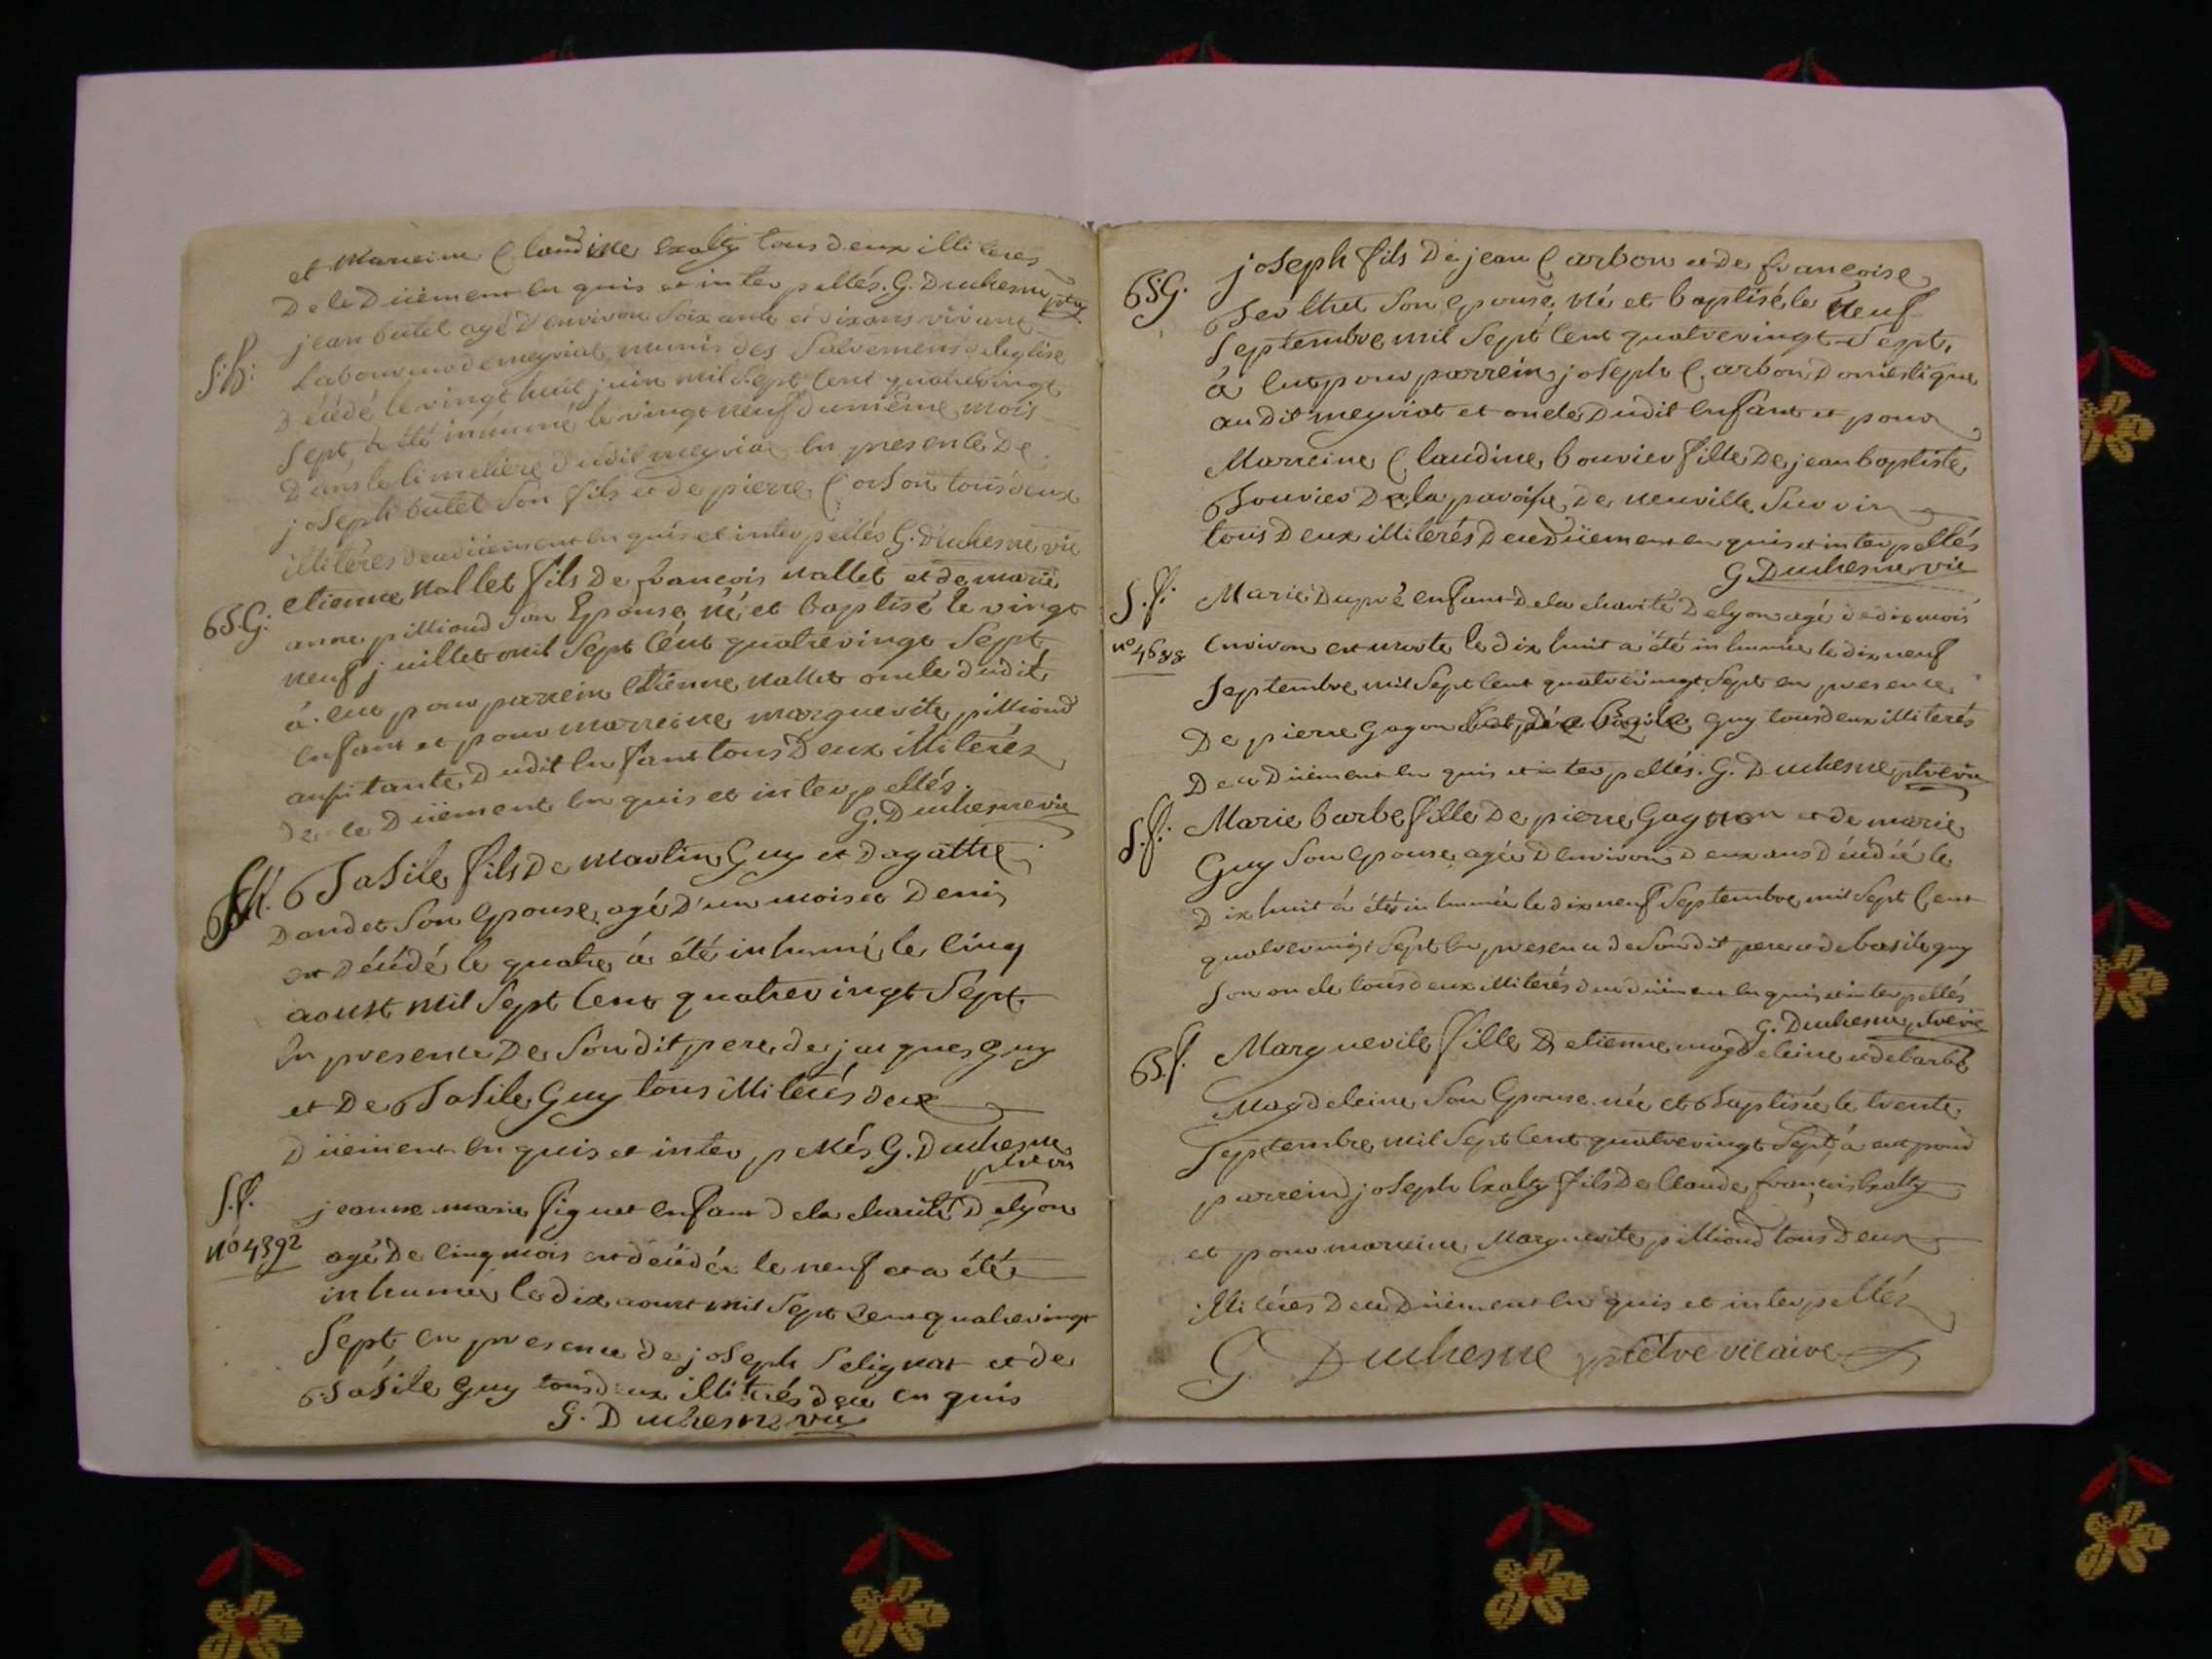 et Marreine Claudine Exalty tous deux illiteres
de ce duëment enquis et interpellés. G. Duchesne ptre vic
S.h. jean butet agé d'environ soixante et dix ans vivant
laboureur de meyriat, munis des sacremens de leglise
décédé le vingt huit juin mil sept cent quatrevingt
sept, à été inhumé le vingt neuf du même mois
dans le cimetiere dudit meyriat en presence de
joseph butet son fils et de pierre Corson tous deux
illitérés de ce duëment enquis et interpellés G. Duchesne vic
B.G. etienne nallet fils de francois nallet et de marie
anne pillioud son Epouse, né et baptisé le vingt
neuf juillet mil sept cent quatrevingt sept
à eu pour parrein etienne nallet oncle dudit
enfant et pour marreine marguerite pillioud
aussi tante dudit enfant tous deux illiterés
de ce duëment enquis et interpellés.
G. Duchesne vic
Basile fils de Martin Guy et dagathe
dandet son epouse, agé d'un mois et demi
est décédé le quatre à été inhumé le cinq
aoust mil sept cent quatrevingt sept
En presence de sondit pere, de jacques guy
et de Basile Guy tous illiterés de ce
duëment enquis et interpellés G. Duchesne
ptre vic
S.f. jeanne marie figuet enfant de la charité de lyon
no 4392 agé de cinq mois est décédée le neuf et a été
inhumée le dix aoust mil sept cent quatrevingt
sept en presence de joseph Selignat et de
Basile Guy tous deux illiterés de ce enquis
G. Duchesne vic
B.G. joseph fils de jean Carbon et de francoise
Berthet son epouse, né et baptisé le neuf
septembre mil sept cent quatrevingt sept,
à eu pour parrein joseph Carbon domestique
audit meyriat et oncle dudit enfant et pour
Marreine Claudine bouvier fille de jean baptiste
Bouvier de la paroisse de neuville sur ain
tous deux illiterés de ce duëment enquis et interpellés
G. Duchesne vic
S.f. Marie Dupré enfant de la charité de lyon agé de dix mois
no 4688 environ est morte le dix huit a été inhumée le dix neuf
septembre mil sept cent quatrevingt sept en presence
de pierre gagnon et de Bazile guy tous deux illiterés
de ce duëment enquis et interpellés. G. Duchesne ptre vic
S.f. Marie barbe fille de pierre Gagnon et de marie
Guy son epouse, agée d'environ deux ans décédée le
dix huit à été inhumée le dix neuf septembre mil sept cent
quatrevingt sept en presence de sondit pere et de basile guy
son oncle tous deux illiterés de ce duëment enquis et interpellés
G. Duchesne ptre vic
B.f. Marguerite fille d etienne magdeleine et de barbe
Magdeleine son epouse née et Baptisée le trente
septembre mil sept cent quatrevingt sept, à eu pour
parrein joseph Exalty fils de claude francois Exalty
et pour marreine Marguerite pillioud tous deux
illiteres de ce duëment enquis et interpellés
G. Duchesne prêtre vicaire